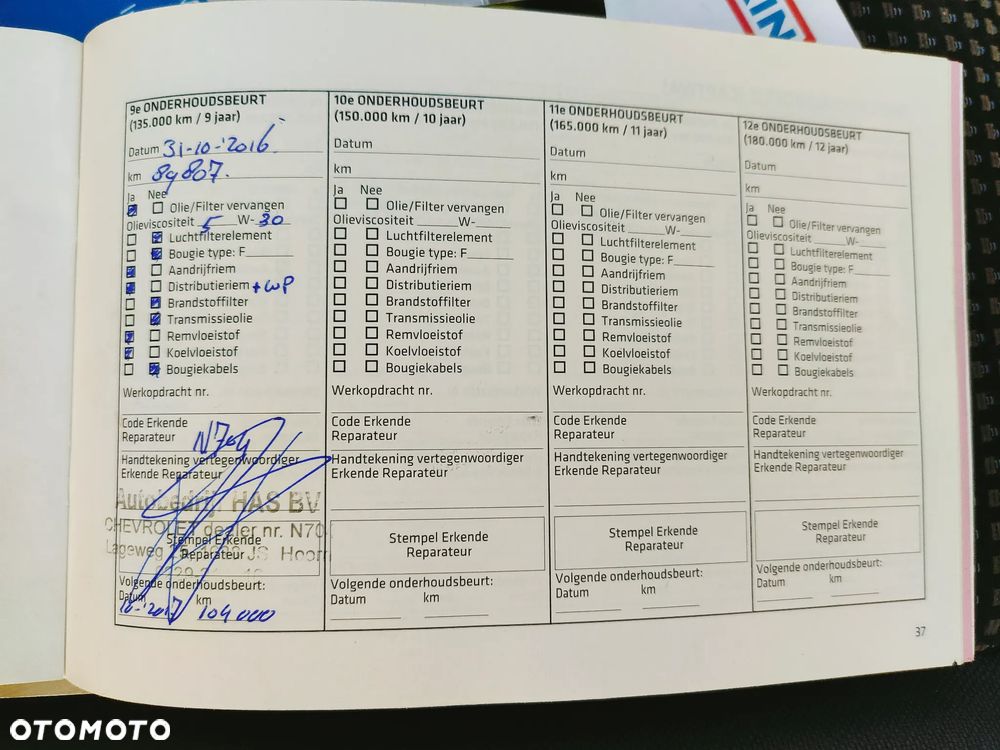 9e ONDERHOUDSBEURT
(135.000 km / 9 jaar)
Datum 31-10-'2016
km 89807.
Ja Nee
Olie/Filter vervangen
Olieviscositeit 5 W- 30
Luchtfilterelement
Bougie type: F
Aandrijfriem
Distributieriem + WP
Brandstoffilter
Transmissieolie
Remvloeistof
Koelvloeistof
Bougiekabels
Werkopdracht nr.
Code Erkende
Reparateur N704
Handtekening vertegenwoordiger
Erkende Reparateur
Autobedrijf HAS BV
CHEVROLET dealer nr. N70
Stempel Erkende
Lageweg JS Hoorn
Reparateur
Volgende onderhoudsbeurt:
Datum km
10-'2017 104000
10e ONDERHOUDSBEURT
(150.000 km / 10 jaar)
Datum
km
Ja Nee
Olie/Filter vervangen
Olieviscositeit W-
Luchtfilterelement
Bougie type: F
Aandrijfriem
Distributieriem
Brandstoffilter
Transmissieolie
Remvloeistof
Koelvloeistof
Bougiekabels
Werkopdracht nr.
Code Erkende
Reparateur
Handtekening vertegenwoordiger
Erkende Reparateur
Stempel Erkende
Reparateur
Volgende onderhoudsbeurt:
Datum km
11e ONDERHOUDSBEURT
(165.000 km / 11 jaar)
Datum
km
Ja Nee
Olie/Filter vervangen
Olieviscositeit W-
Luchtfilterelement
Bougie type: F
Aandrijfriem
Distributieriem
Brandstoffilter
Transmissieolie
Remvloeistof
Koelvloeistof
Bougiekabels
Werkopdracht nr.
Code Erkende
Reparateur
Handtekening vertegenwoordiger
Erkende Reparateur
Stempel Erkende
Reparateur
Volgende onderhoudsbeurt:
Datum km
12e ONDERHOUDSBEURT
(180.000 km / 12 jaar)
Datum
km
Ja Nee
Olie/Filter vervangen
Olieviscositeit W-
Luchtfilterelement
Bougie type: F
Aandrijfriem
Distributieriem
Brandstoffilter
Transmissieolie
Remvloeistof
Koelvloeistof
Bougiekabels
Werkopdracht nr.
Code Erkende
Reparateur
Handtekening vertegenwoordiger
Erkende Reparateur
Stempel Erkende
Reparateur
Volgende onderhoudsbeurt:
Datum km
37
OTOMOTO